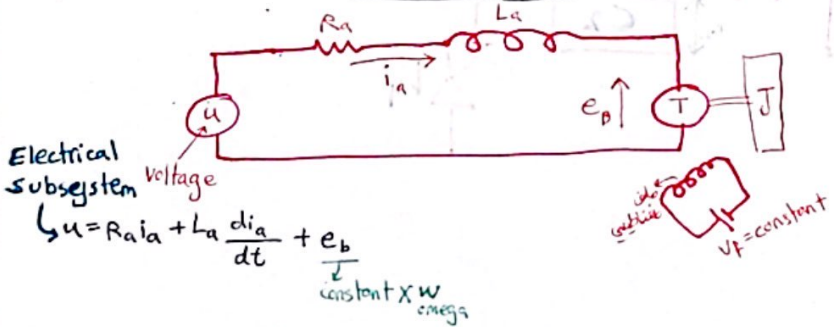 Ra
La
ia
u
eB
T
J
Electrical
subsystem
voltage
u = Raia + La dia/dt + eb
constant x w
omega
Vf = constant